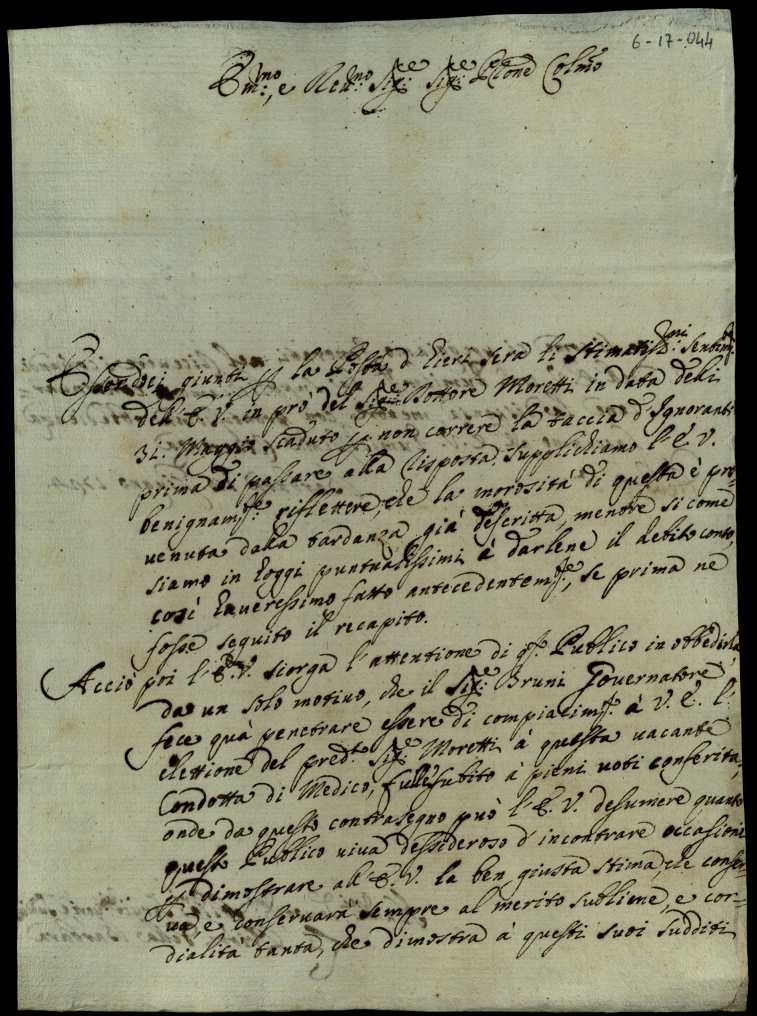 6-17-044
Em:mo, e Red:mo Sig:re Sig:re Prone Colmo
Essendoci giunti p la Posta d'Hieri sera li stimatis:mi sentim:
dell'E.V. in prò del Sig:re Dottore Moretti in data delli
31. Maggio scaduto p non correre la taccia d'Ignoranti
prima di passare alla risposta, supplichiamo l'E.V.
benignam:te riflettere, che la morosità di questa è pro-
venuta dalla tardanza già descritta, mentre si come
siamo in hoggi puntualissimi à darlene il debito conto,
così haveressimo fatto antecedentem:te, se prima ne
fosse seguito il recapito.
Acciò poi l'E.V. scorga l'attentione di q:to Publico in obbedirla
da un solo motivo, che il Sig:re Bruni Governatore
fece quà penetrare essere di compiacim:to à V.E. l'
elettione del pred:to Sig:re Moretti à questa vacante
Condotta di Medico, fulle subito à pieni voti conferita,
onde da questo contrasegno può l'E.V. desumere quanto
questo Publico viva dessideroso d'incontrare occasioni
p dimostrare all'E.V. la ben giusta stima, che conser-
va, e conservarà sempre al merito sublime, e cor-
dialità tanta, che dimostra à questi suoi sudditi